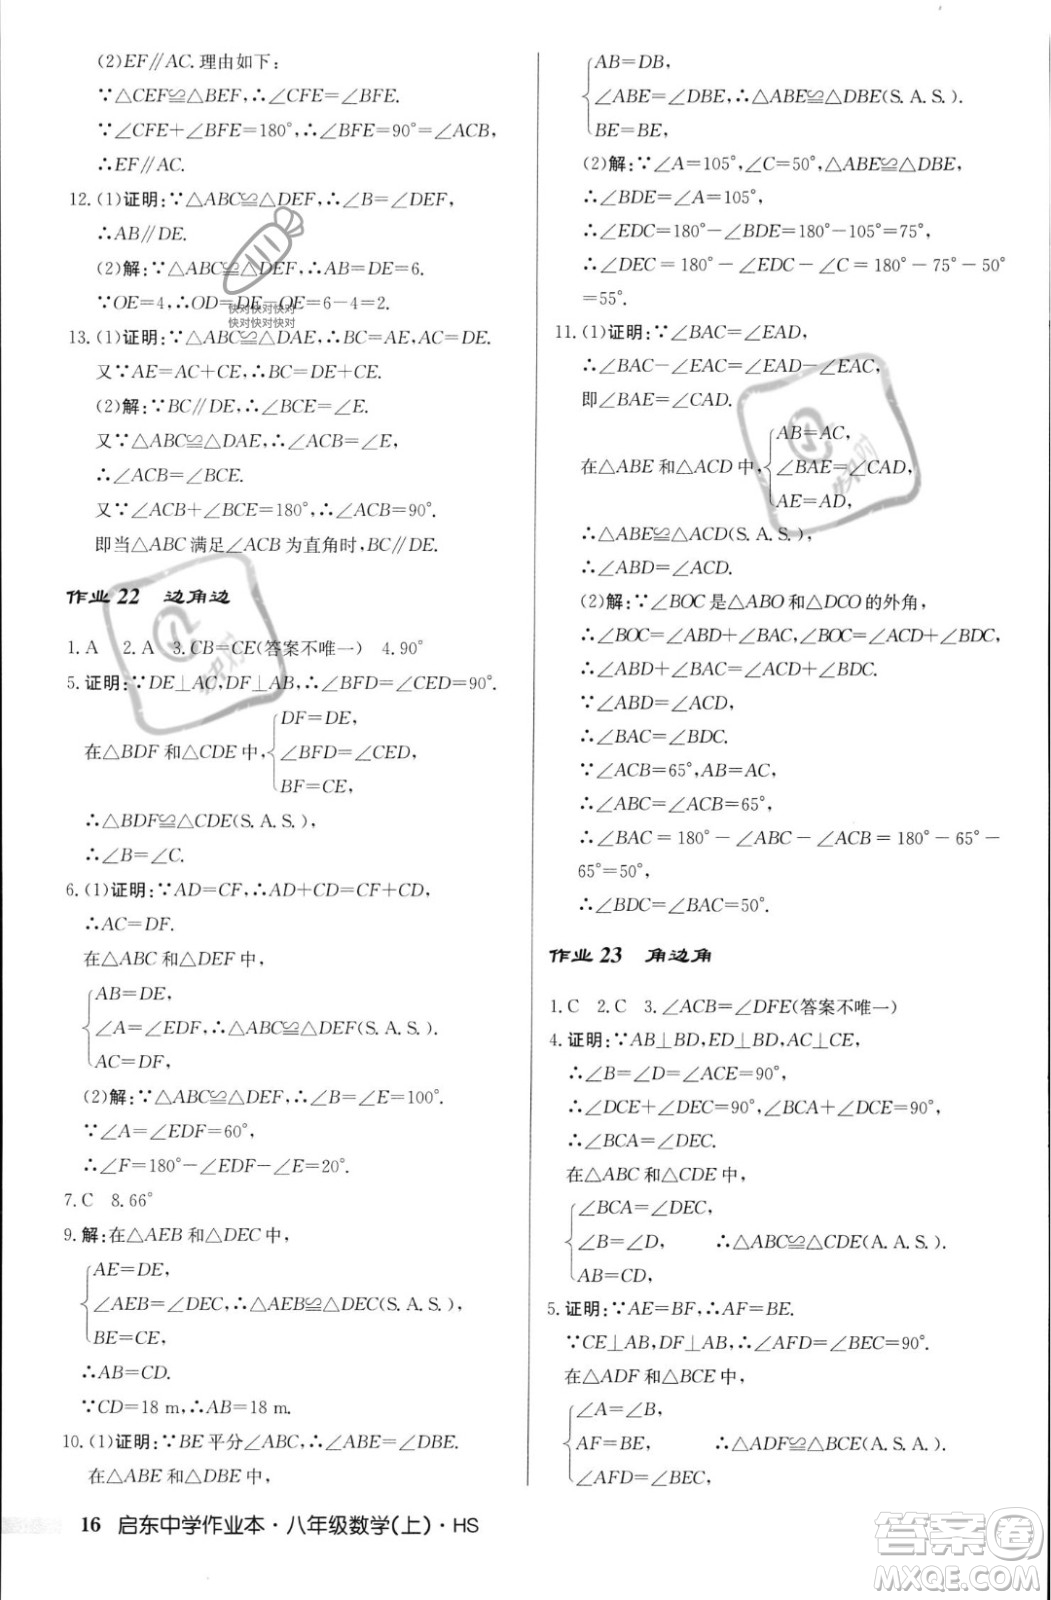 (2)EF∥AC.理由如下:
∵△CEF≌△BEF,∴∠CFE=∠BFE.
∵∠CFE+∠BFE=180°,∴∠BFE=90°=∠ACB,
∴EF∥AC.
12.(1)证明:∵△ABC≌△DEF,∴∠A=∠BEF,
∴AB∥DE.
(2)解:∵△ABC≌△DEF,∴AB=DE=6.
∵OE=4,∴OD=DE-OE=6-4=2.
快对快对快对
快对快对快对
13.(1)证明:∵△ABC≌△DAE,∴BC=AE,AC=DE.
又∵AE=AC+CE,∴BC=DE+CE.
(2)解:∵BC∥DE,∴∠BCE=∠E.
又∵△ABC≌△DAE,∴∠ACB=∠E.
∴∠ACB=∠BCE.
又∵∠ACB+∠BCE=180°,∴∠ACB=90°.
即当△ABC满足∠ACB为直角时,BC∥DE.
作业 22 边角边
1.A 2.A 3.CB=CE(答案不唯一) 4.90°
5.证明:∵DE⊥AC,DF⊥AB,∴∠BFD=∠CED=90°.
在△BDF和△CDE中,
DF=DE,
∠BFD=∠CED,
BF=CE,
∴△BDF≌△CDE(S.A.S.),
∴∠B=∠C.
6.(1)证明:∵AD=CF,∴AD+CD=CF+CD,
∴AC=DF.
在△ABC和△DEF中,
AB=DE,
∠A=∠EDF,∴△ABC≌△DEF(S.A.S.).
AC=DF,
(2)解:∵△ABC≌△DEF,∴∠B=∠E=100°.
∵∠A=∠EDF=60°,
∴∠F=180°-∠EDF-∠E=20°.
7.C 8.66°
9.解:在△AEB和△DEC中,
AE=DE,
∠AEB=∠DEC,∴△AEB≌△DEC(S.A.S.),
BE=CE,
∴AB=CD.
∵CD=18 m,∴AB=18 m.
10.(1)证明:∵BE平分∠ABC,∴∠ABE=∠DBE.
在△ABE和△DBE中,
AB=DB,
∠ABE=∠DBE,∴△ABE≌△DBE(S.A.S.).
BE=BE,
(2)解:∵∠A=105°,∠C=50°,△ABE≌△DBE,
∴∠BDE=∠A=105°,
∴∠EDC=180°-∠BDE=180°-105°=75°,
∴∠DEC=180°-∠EDC-∠C=180°-75°-50°
=55°.
11.(1)证明:∵∠BAC=∠EAD,
∴∠BAC-∠EAC=∠EAD-∠EAC,
即∠BAE=∠CAD.
在△ABE和△ACD中,
AB=AC,
∠BAE=∠CAD,
AE=AD,
∴△ABE≌△ACD(S.A.S.),
∴∠ABD=∠ACD.
(2)解:∵∠BOC是△ABO和△DCO的外角,
∴∠BOC=∠ABD+∠BAC,∠BOC=∠ACD+∠BDC,
∴∠ABD+∠BAC=∠ACD+∠BDC.
∵∠ABD=∠ACD,
∴∠BAC=∠BDC.
∵∠ACB=65°,AB=AC,
∴∠ABC=∠ACB=65°,
∴∠BAC=180°-∠ABC-∠ACB=180°-65°-
65°=50°,
∴∠BDC=∠BAC=50°.
作业 23 角边角
1.C 2.C 3.∠ACB=∠DFE(答案不唯一)
4.证明:∵AB⊥BD,ED⊥BD,AC⊥CE,
∴∠B=∠D=∠ACE=90°,
∴∠DCE+∠DEC=90°,∠BCA+∠DCE=90°,
∴∠BCA=∠DEC.
在△ABC和△CDE中,
∠BCA=∠DEC,
∠B=∠D, ∴△ABC≌△CDE(A.A.S.).
AB=CD,
5.证明:∵AE=BF,∴AF=BE.
∵CE⊥AB,DF⊥AB,∴∠AFD=∠BEC=90°.
在△ADF和△BCE中,
∠A=∠B,
AF=BE, ∴△ADF≌△BCE(A.S.A.).
∠AFD=∠BEC,
16 启东中学作业本·八年级数学(上)·HS
答案圈
MXQE.COM